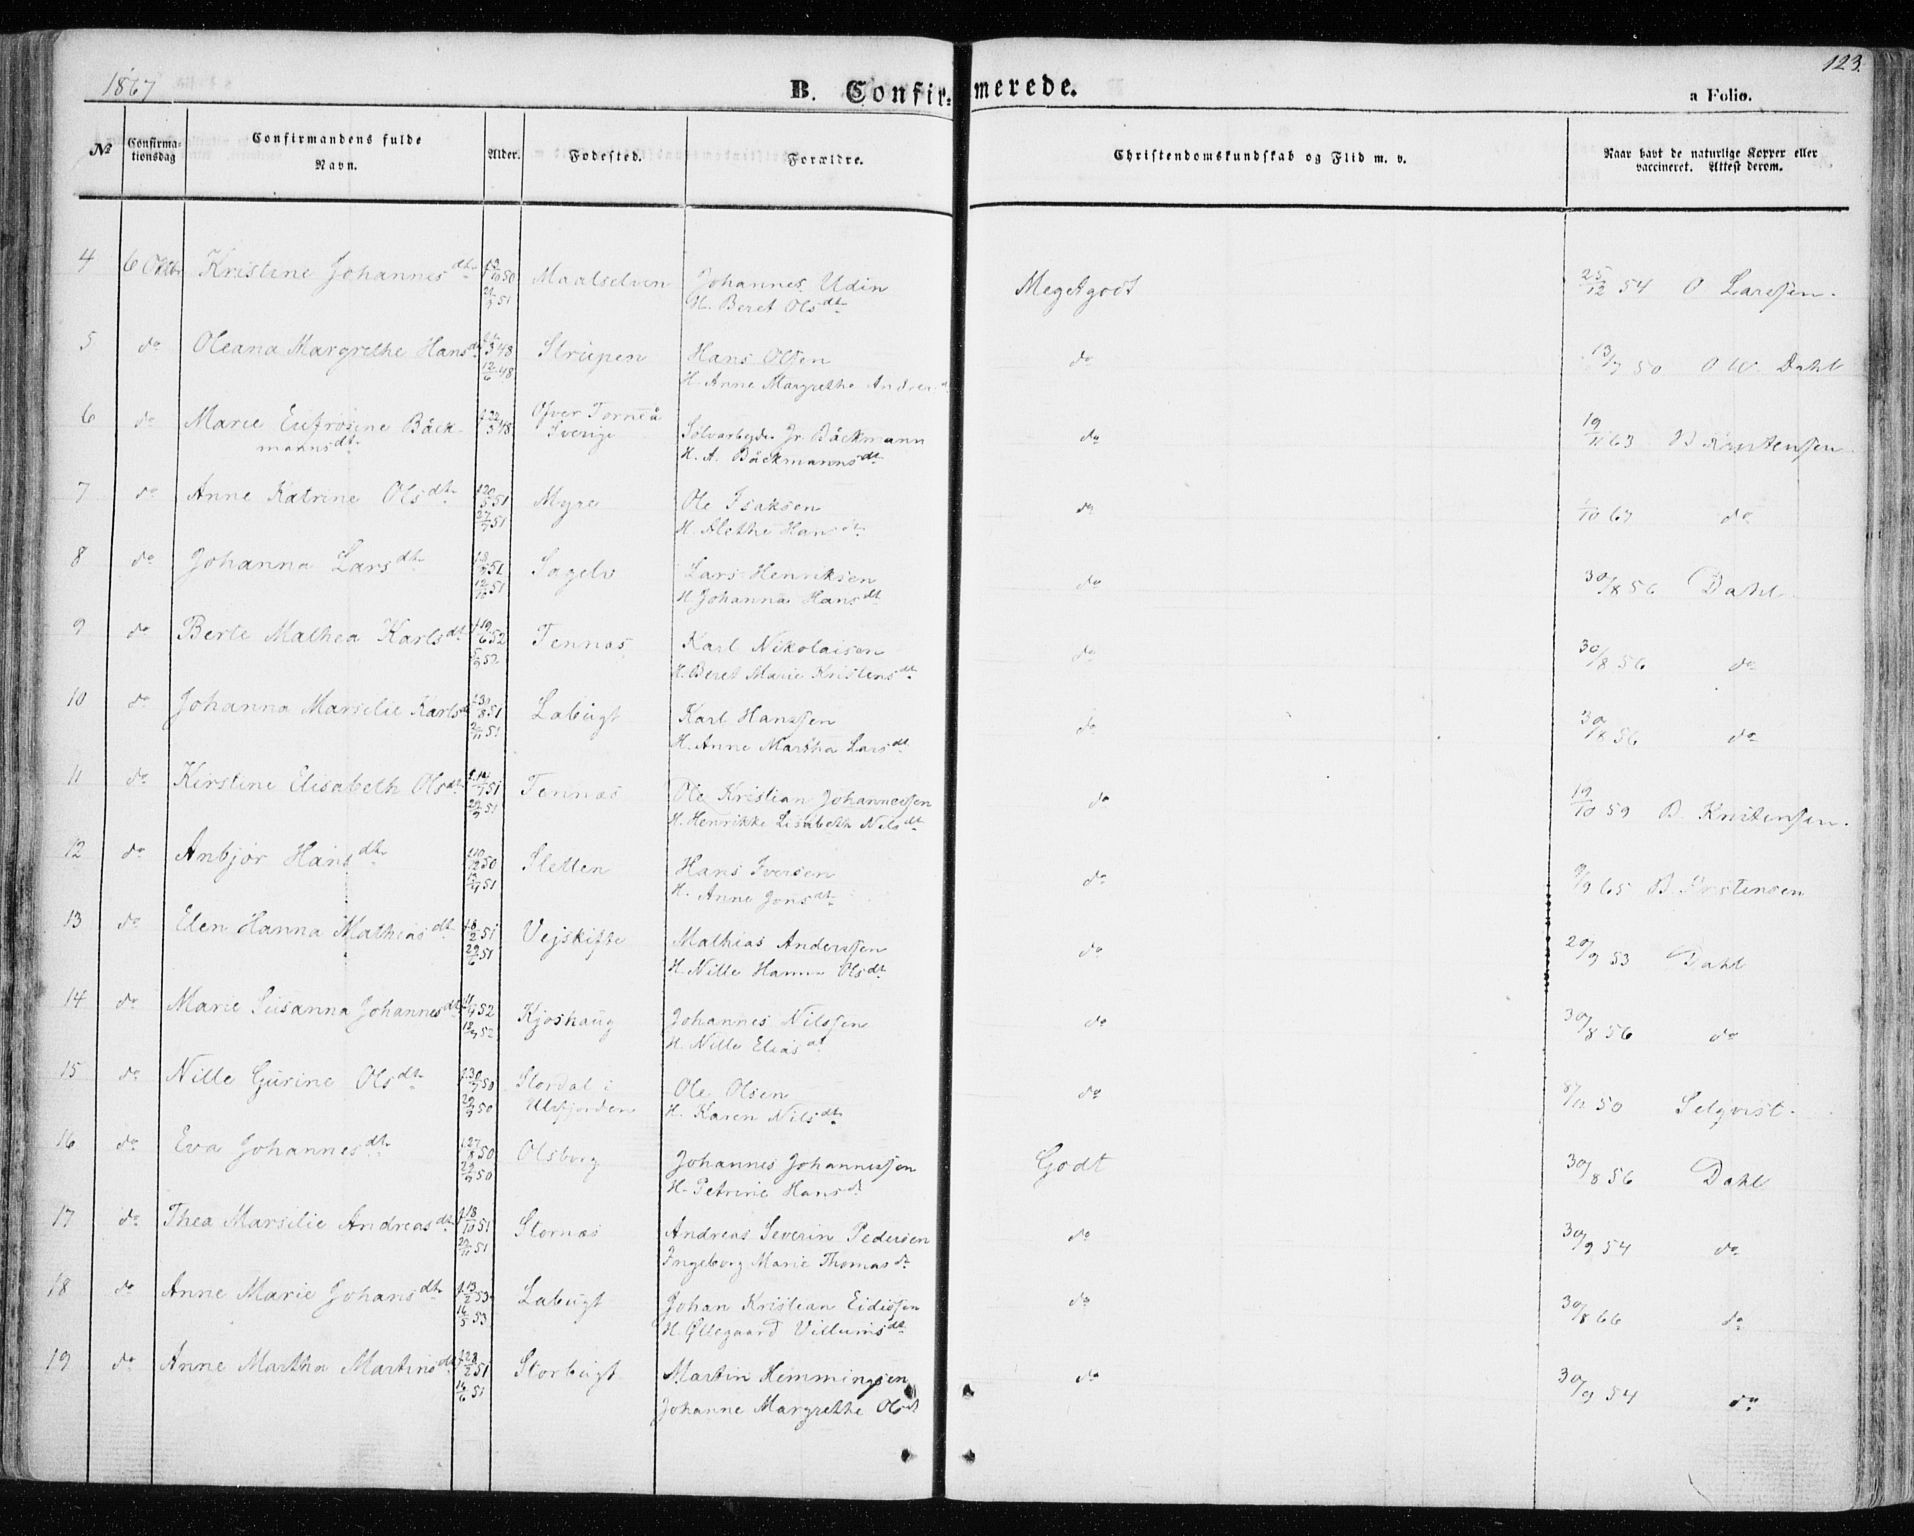 1867
B. Confirmerede.
123.
a Folio.
No Confirmationsdag Confirmandens fulde Navn. Alder. Fødested. Forældre. Christendomskundskab og Flid m. v. Naar havt de naturlige Kopper eller vaccineret. Attest derom.
4 6 Oktbr Kristine Johannesdtr 50 51 Maalselven Johannes Udin H. Beret Olsdtr Megetgodt 25/12 54 O Larssen.
5 do Oleana Margrethe Hansdtr 48 12/6 48 Strupen Hans Olsen H. Anne Margrethe do 13/7 50 O W. Dahl
6 do Marie Eufrosine Bäckmannsdtr 48 Ofver Torneå Sverige Sølvarbeyder Jr Bäckmann H. A. Bäckmannsdt do 19/11 63 B Kristensen
7 do Anne Katrine Olsdtr 51 27/7 51 Myre Ole Isaksen H. Alethe Hansdtr do 1/10 67 do
8 do Johanna Larsdtr 51 51 Sagelv Lars Henriksen H. Johanna Hansdt do 30/8 56 Dahl
9 do Berte Mathea Karlsdt 19/6 52 52 Tennæs Karl Nikolaisen H. Beret Marie Kristensdt do 30/8 56 do
10 do Johanna Marselie Karlsd 51 51 Labugt Karl Hanssen H. Anne Martha Larsdt do 30/8 56 do
11 do Kirstine Elisabeth Olsdt 51 51 Tennæs Ole Kristian Johannessen H. Henrikke Lisabeth Nilsdt do 19/10 59 B. Kristensen.
12 do Anbjør Hansdtr 10/12 50 51 Sletten Hans Iversen H. Anne Jonsdtr do 9/9 65 B. Kristensen
13 do Elen Hanna Mathiasdt 18/2 51 29/6 51 Vejskifte Mathias Anderssen H. Nille Hanna Olsdt do 20/9 53 Dahl
14 do Marie Susanna Johannesdt 52 52 Kjoshaug Johannes Nilssen H. Nille Eliasdt do 30/8 56 do
15 do Nille Gurine Olsdtr 50 50 Stordal i Ulsfjorden Ole Olsen H. Karen Nilsdtr do 8/12 50 Selqvist.
16 do Eva Johannesdtr 27/8 50 50 Olsborg Johannes Johannessen H. Petrine Hansdt Godt 30/8 56 Dahl
17 do Thea Marsilie Andreasdt 18/10 51 51 Stornæs Andreas Severin Pedersen Ingeborg Marie Thomasdt do 30/9 54 do
18 do Anne Marie Johansdtr 13/2 53 16/5 53 Labugt Johan Kristian Eidissen H. Øllegaard Villumsdt do 30/8 66 do
19 do Anne Martha Martinsdt 28/2 51 51 Storbugt Martin Hemmingsen Johanne Margrethe Olsdt do 30/9 54 do